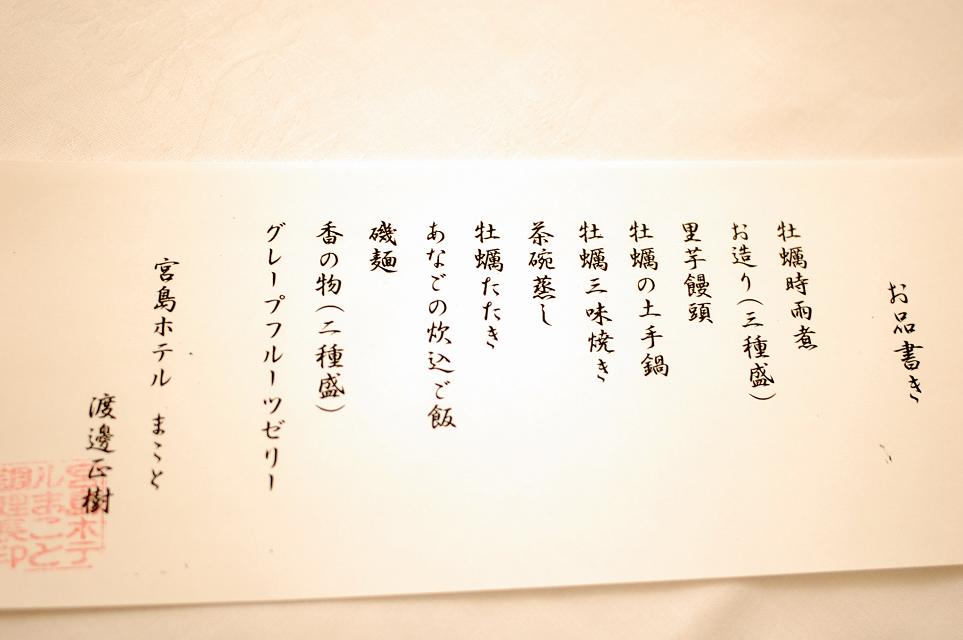 お品書き
牡蠣時雨煮
お造り(三種盛)
里芋饅頭
牡蠣の土手鍋
牡蠣三味焼き
茶碗蒸し
牡蠣たたき
あなごの炊込ご飯
磯麺
香の物(二種盛)
グレープフルーツゼリー
宮島ホテル まこと
渡邊正樹
宮島ホテ
ルまこと
調理長印